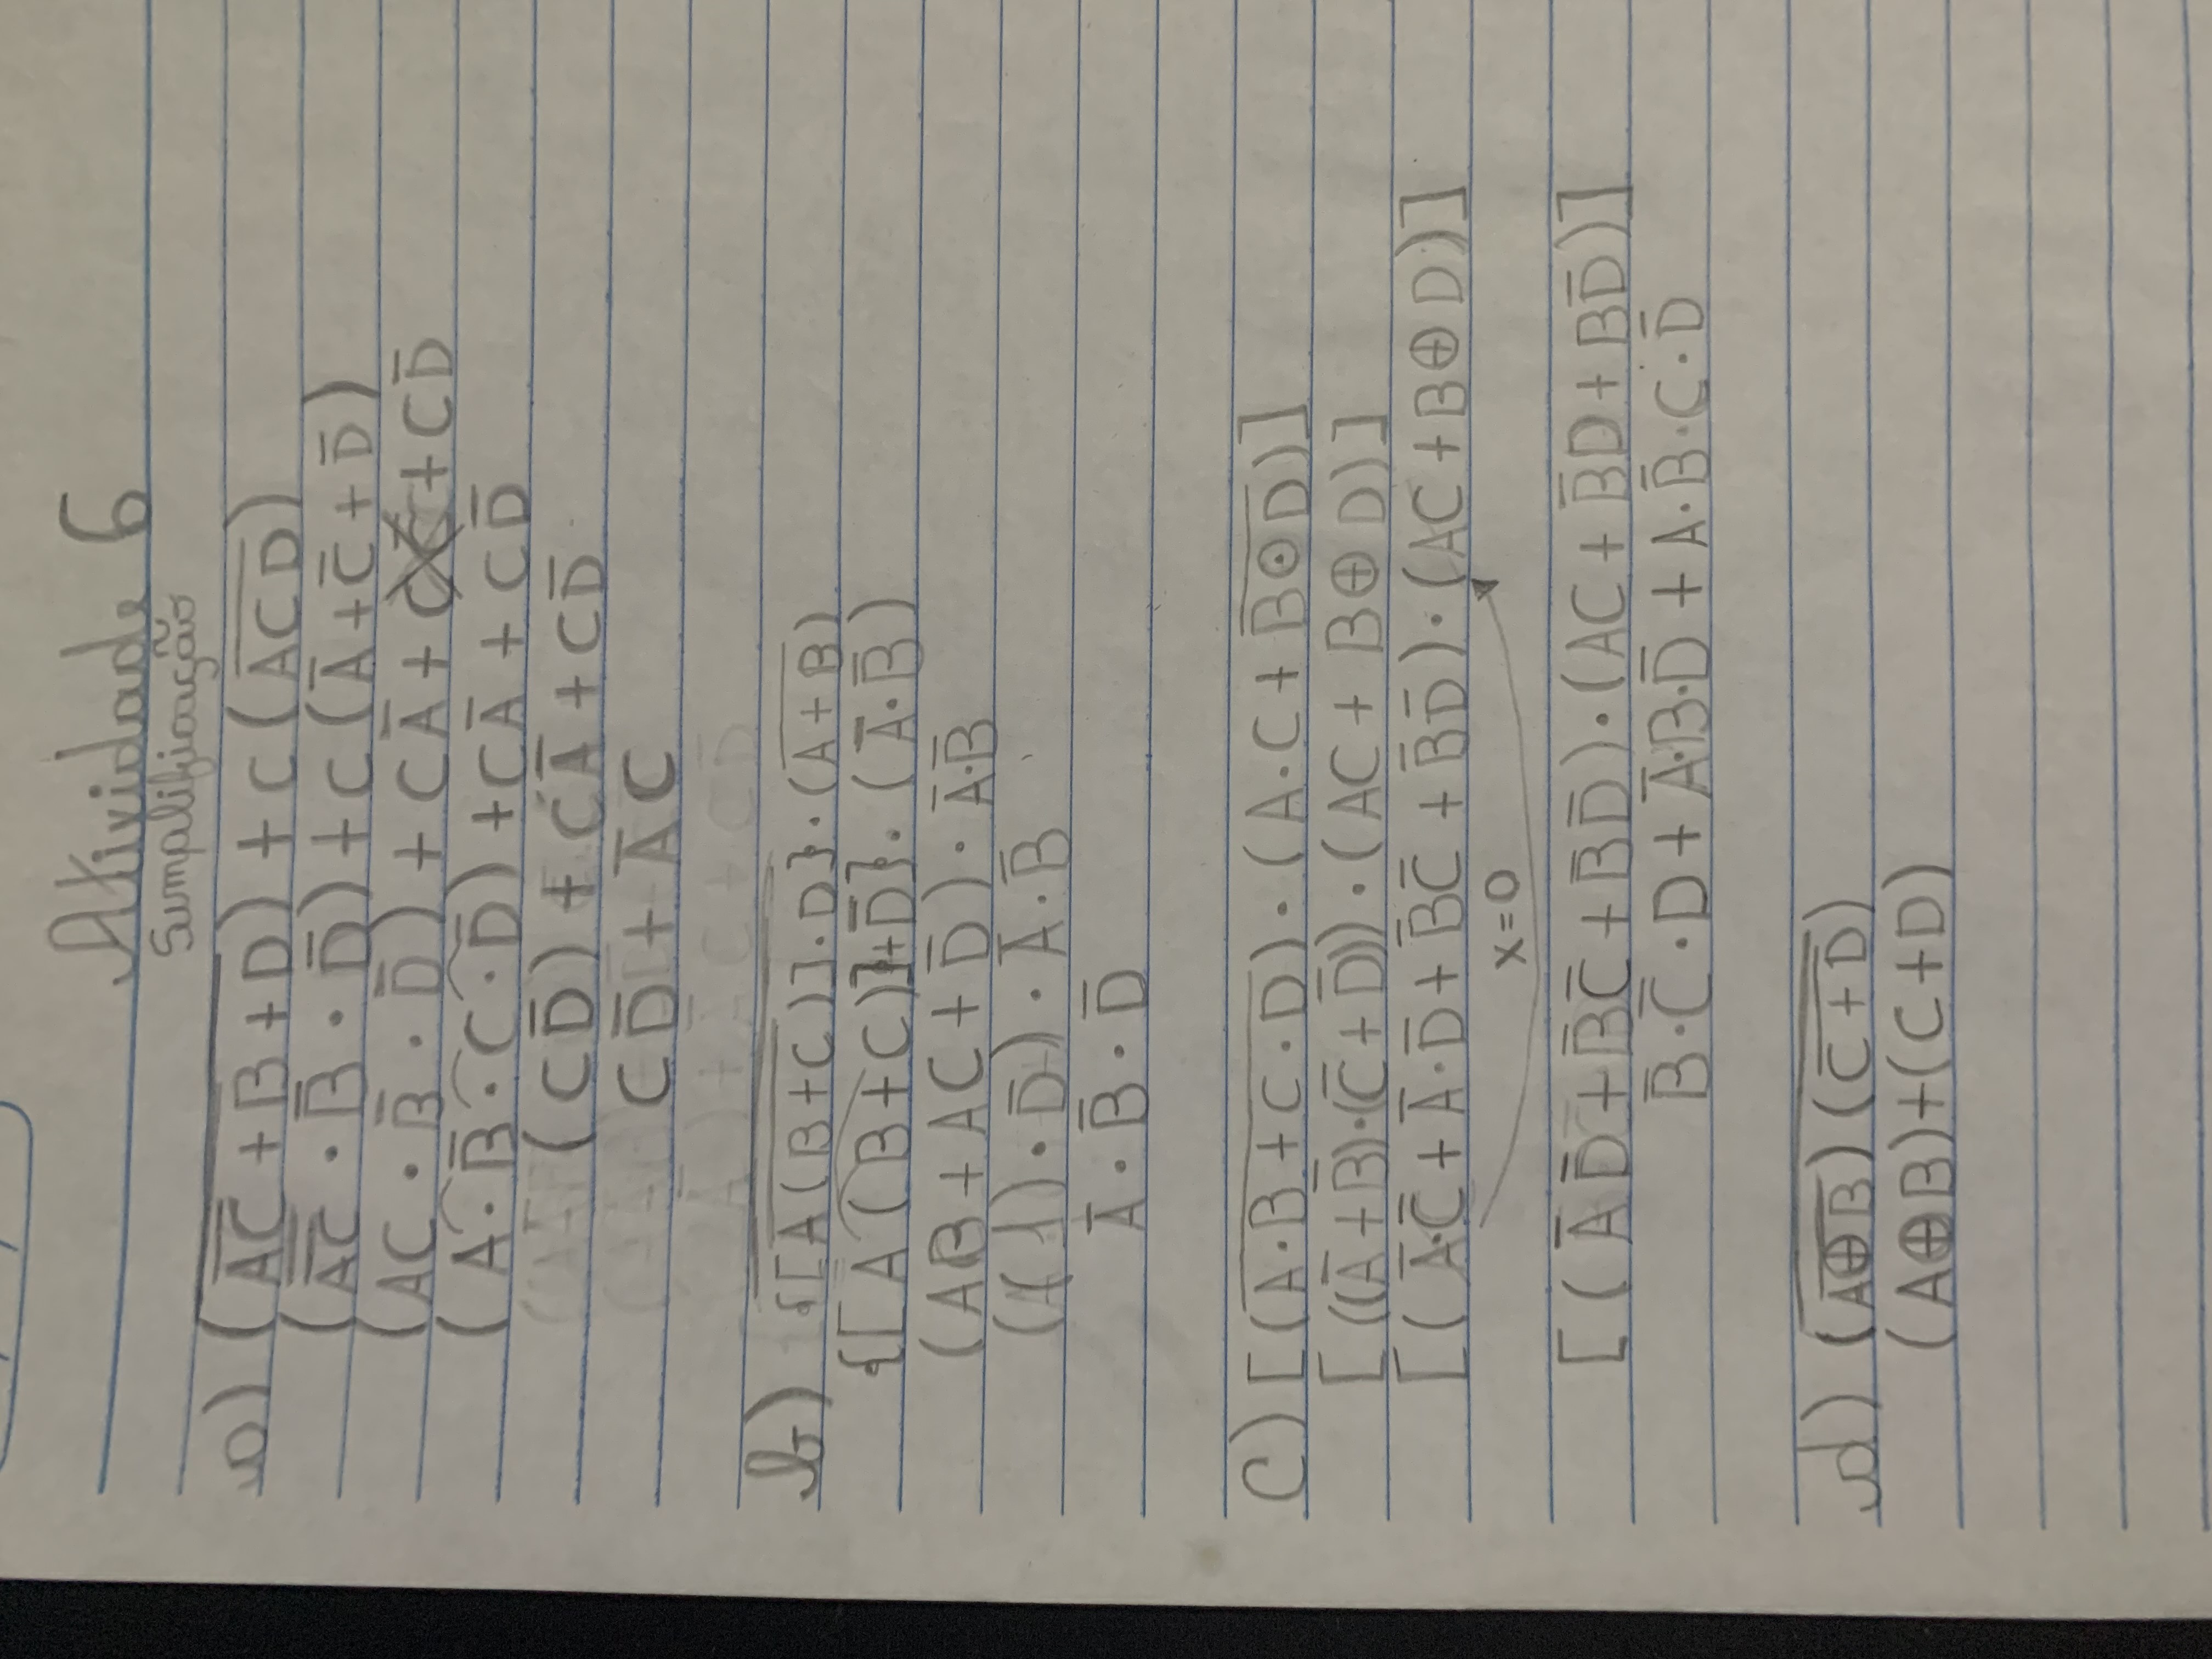 Atividade 6
Simplificação
a) (A̅C̅ + B + D)̅ + C (A̅C̅D̅)
(A̿C̿ · B̅ · D̅) + C (A̅ + C̅ + D̅)
(AC · B̅ · D̅) + CA̅ + CC̅ + CD̅
(A · B̅ · C · D̅) + CA̅ + CD̅
(CD̅) + CA̅ + CD̅
CD̅ + A̅C
b) {[A̅(̅B̅+̅C̅)̅] · D}̅ · (A̅ ̅+̅ ̅B̅)
{[A (B + C)] + D̅} · (A̅ · B̅)
(AB + AC + D̅) · A̅·B̅
((1) · D̅) · A̅ · B̅
A̅ · B̅ · D̅
c) [(A̅·̅B̅ ̅+̅ ̅C̅·̅D̅) · (A·C + B̅⊙̅D̅)]
[((A̅ + B̅)·(C̅ + D̅)) · (AC + B⊕D)]
[(A̅·C̅ + A̅·D̅ + B̅C̅ + B̅D̅) · (AC + B⊕D)]
x=0
[(A̅D̅ + B̅C̅ + B̅D̅) · (AC + B̅D + BD̅)]
B̅·C̅·D + A̅·B·D̅ + A·B̅·C·D̅
d) (A̅⊕̅B̅)(C̅ ̅+̅ ̅D̅)̅
(A⊕B)+(C+D)